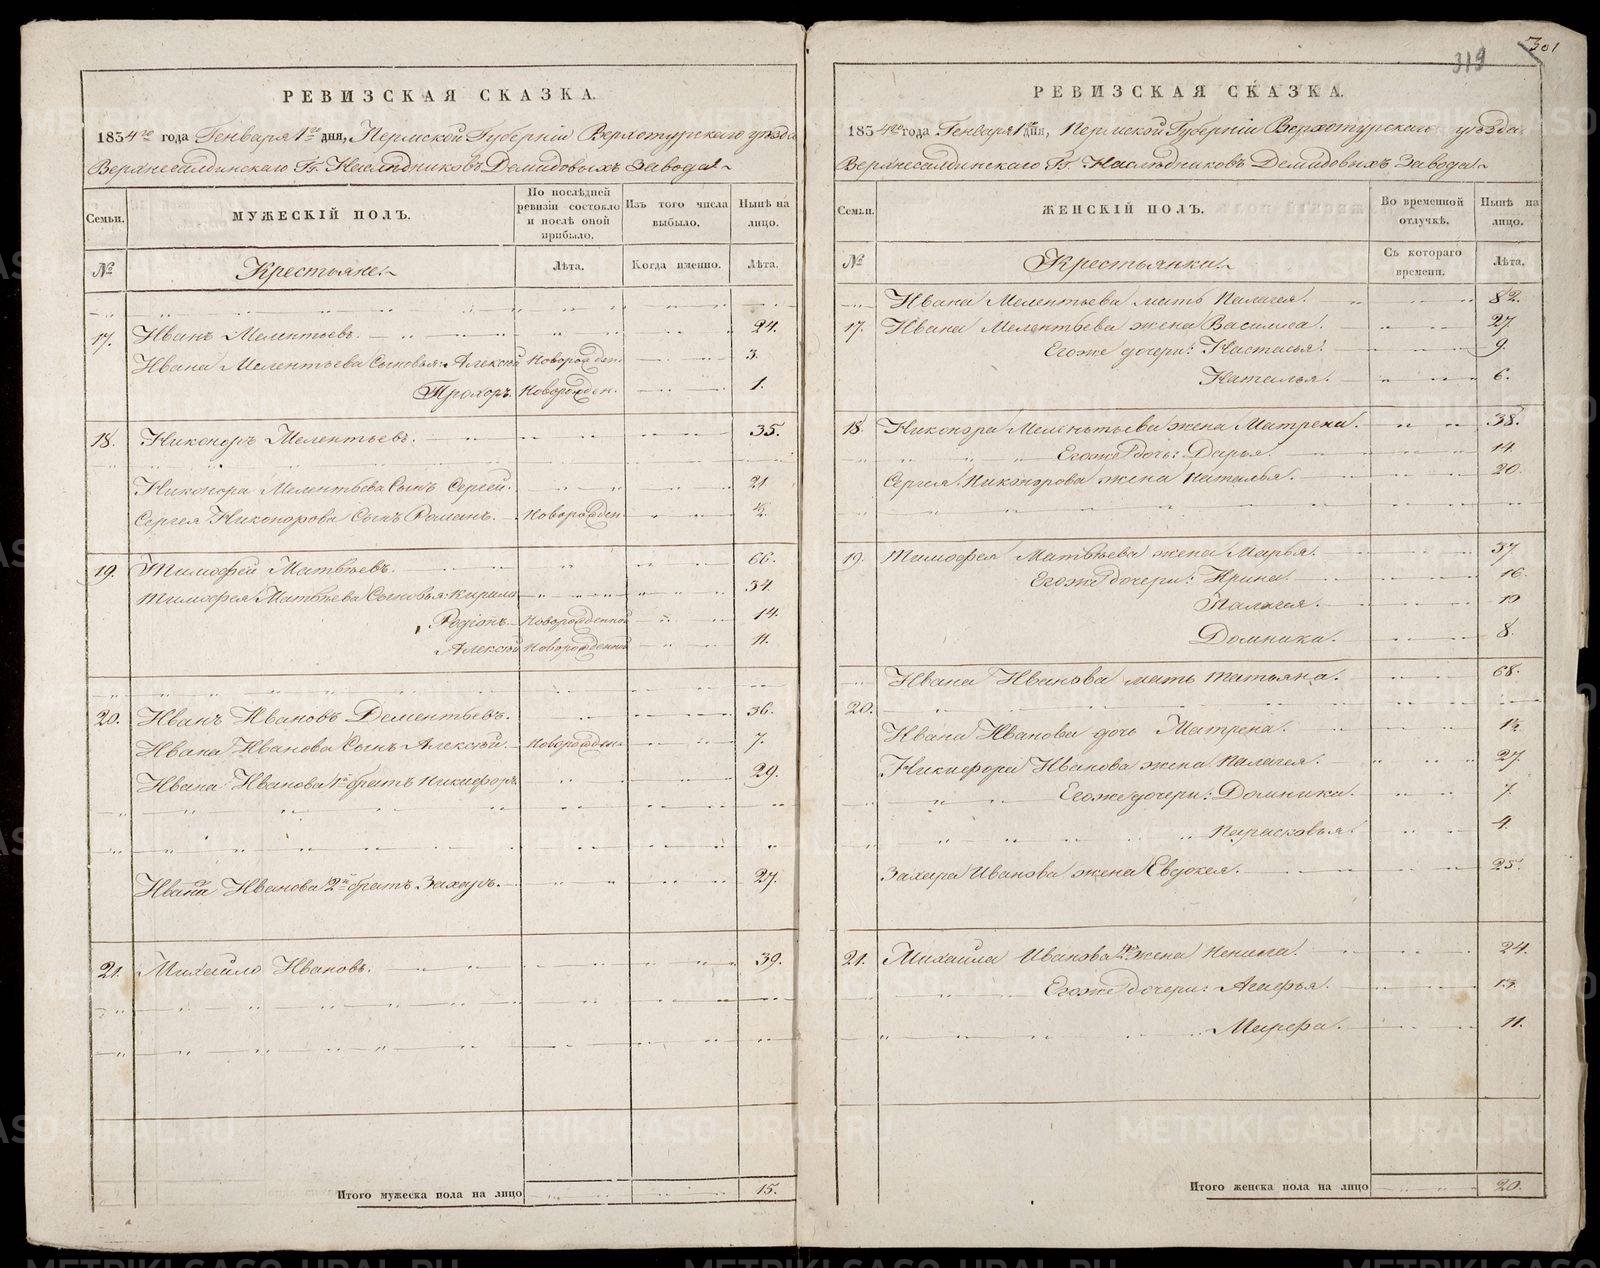 РЕВИЗСКАЯ СКАЗКА.
1834го года Генваря 1го дня, Пермской Губерніи Верхотурскаго уѣзда
Верхнесалдинскаго Гг. Наслѣдниковъ Демидовыхъ Завода
Семьи.
МУЖЕСКІЙ ПОЛЪ.
По послѣдней ревизіи состояло и послѣ оной прибыло.
Изъ того числа выбыло.
Нынѣ на лицо.
№
Крестьяне
Лѣта.
Когда именно.
Лѣта.
17. Иванъ Мелентьевъ. 24.
Ивана Мелентьева Сыновья: Алексѣй Новорожден. 3.
Прохоръ. Новорожден. 1.
18. Никоноръ Мелентьевъ. 35.
Никонора Мелентьева Сынъ Сергей. 21
Сергея Никонорова Сынъ Романъ. Новорожден. ½
19. Тимофей Матвѣевъ. 66.
Тимофея Матвѣева Сыновья: Кирило 34.
Родіонъ Новорожденной 14.
Алексѣй Новорожденной 11.
20. Иванъ Ивановъ Дементьевъ. 36.
Ивана Иванова Сынъ Алексѣй. Новорожден. 7.
Ивана Иванова 1й братъ Никифоръ 29.
Ивана Иванова 2й братъ Захаръ. 27.
21. Михайло Ивановъ. 39.
Итого мужеска пола на лицо 15.
319
301
РЕВИЗСКАЯ СКАЗКА.
1834го года Генваря 1го дня, Пермской Губерніи Верхотурскаго уѣзда
Верхнесалдинскаго Гг. Наслѣдниковъ Демидовыхъ Завода
Семьи.
ЖЕНСКІЙ ПОЛЪ.
Во временной отлучкѣ.
Нынѣ на лицо.
№
Крестьянки
Съ котораго времени.
Лѣта.
Ивана Мелентьева мать Палагея. 82.
17. Ивана Мелентьева жена Василиса. 27
Егоже дочери: Настасья. 9.
Наталья. 6.
18. Никонора Мелентьева жена Матрена. 38.
Егоже дочь: Дарья. 14.
Сергея Никонорова жена Наталья. 20.
19. Тимофея Матвѣева жена Марья. 37
Егоже дочери: Ирина. 16.
Палагея. 10
Домника. 8.
Ивана Иванова мать Татьяна. 68.
20.
Ивана Иванова дочь Матрена.
Никифора Иванова жена Палагея. 27.
Егоже дочери: Домника. 7.
Парасковья. 4.
Захара Иванова жена Евдокея. 25.
21. Михайла Иванова жена Ненила. 24.
Егоже дочери: Агафья. 13.
Марфа. 11.
Итого женска пола на лицо 20.
METRIKI.GASO-URAL.RU